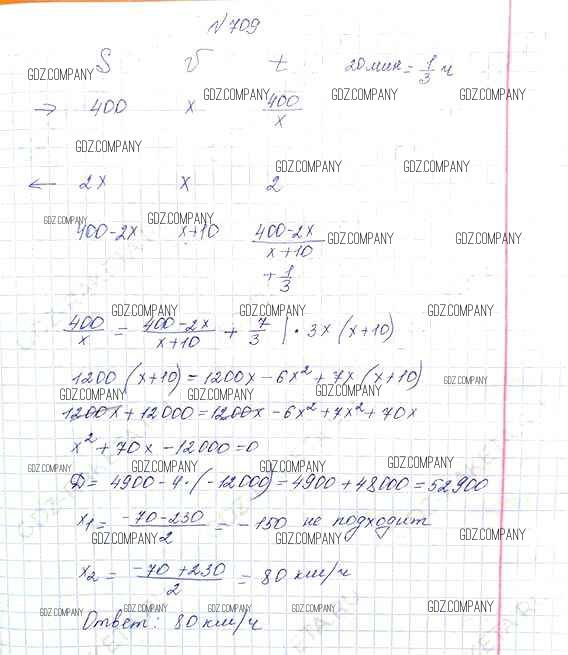 № 709
S V t 20 мин = 1/3 ч
GDZ.COMPANY
GDZ.COMPANY GDZ.COMPANY GDZ.COMPANY
→ 400 x 400/x
GDZ.COMPANY
GDZ.COMPANY GDZ.COMPANY
← 2x x 2
GDZ.COMPANY GDZ.COMPANY
400-2x x+10 (400-2x)/(x+10)
GDZ.COMPANY GDZ.COMPANY
+ 1/3
GDZ.COMPANY GDZ.COMPANY GDZ.COMPANY
400/x = (400-2x)/(x+10) + 7/3 | · 3x (x+10)
1200 (x+10) = 1200x - 6x² + 7x (x+10)
GDZ.COMPANY
GDZ.COMPANY GDZ.COMPANY GDZ.COMPANY
1200x + 12000 = 1200x - 6x² + 7x² + 70x
x² + 70x - 12000 = 0
GDZ.COMPANY GDZ.COMPANY GDZ.COMPANY GDZ.COMPANY
D = 4900 - 4 · (-12000) = 4900 + 48000 = 52900
x₁ = (-70-230)/2 = -150 не подходит
GDZ.COMPANY GDZ.COMPANY GDZ.COMPANY
x₂ = (-70+230)/2 = 80 км/ч
GDZ.COMPANY GDZ.COMPANY GDZ.COMPANY GDZ.COMPANY GDZ.COMPANY
Ответ: 80 км/ч